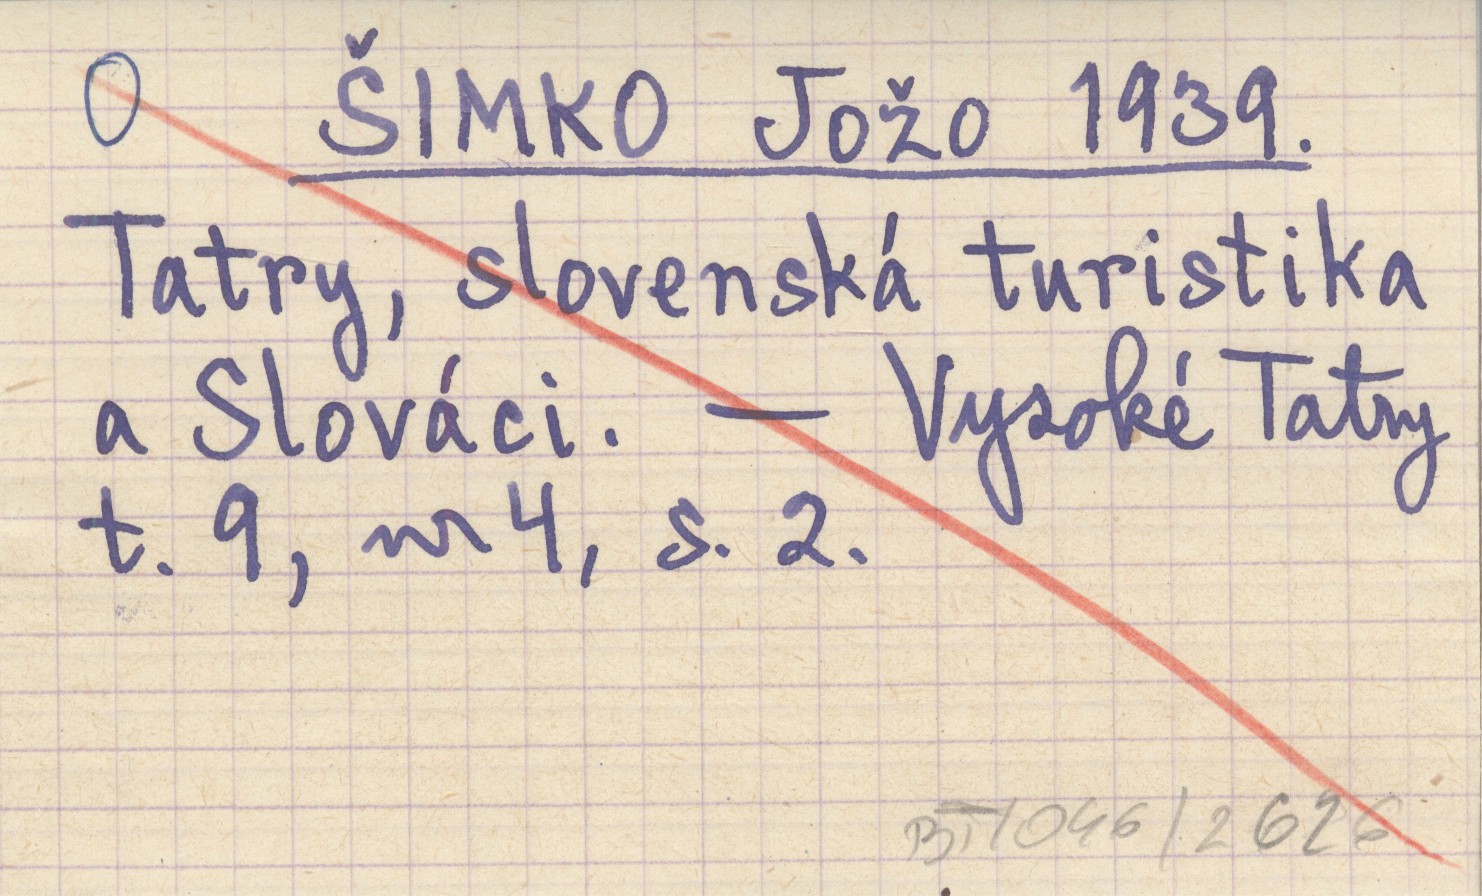 0 ŠIMKO Jožo 1939.
Tatry, slovenská turistika
a Slováci. — Vysoké Tatry
t. 9, nr 4, s. 2.
BT/046/2626